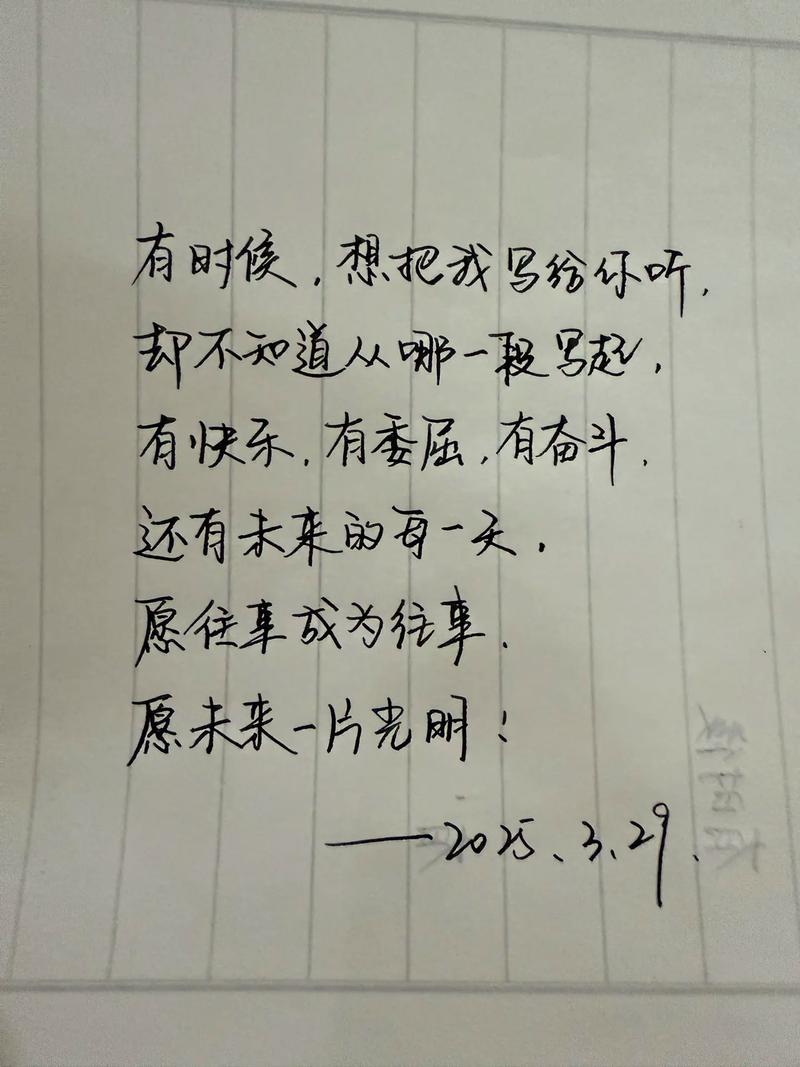 有时候，想把我写给你听，
却不知道从哪一段写起，
有快乐，有委屈，有奋斗，
还有未来的每一天，
愿往事成为往事，
愿未来一片光明！
——2025、3、29、